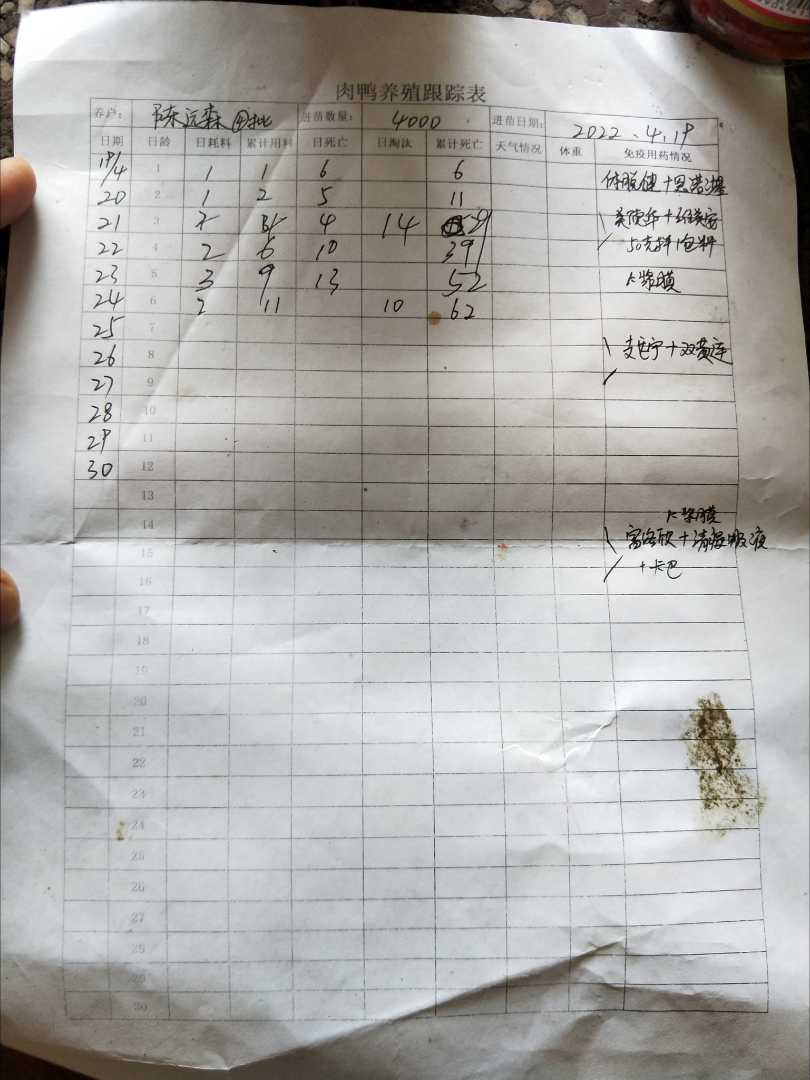 肉鸭养殖跟踪表
养户: 陈远森 ④批 进苗数量: 4000 进苗日期: 2022.4.19
日期 日龄 日耗料 累计用料 日死亡 日淘汰 累计死亡 天气情况 体重 免疫用药情况
19/4 1 1 1 6 6
20 2 1 2 5 11
21 3 4 14 29
22 4 2 6 10 39
50克拌1包料
23 5 3 9 13 52 浆膜
24 6 2 11 10 62
25 7
26 8 +双黄连
27 9
28 10
29 11
30 12
13
14 浆膜
15
16 +卡巴
17
18
19
20
21
22
23
24
25
26
27
28
29
30